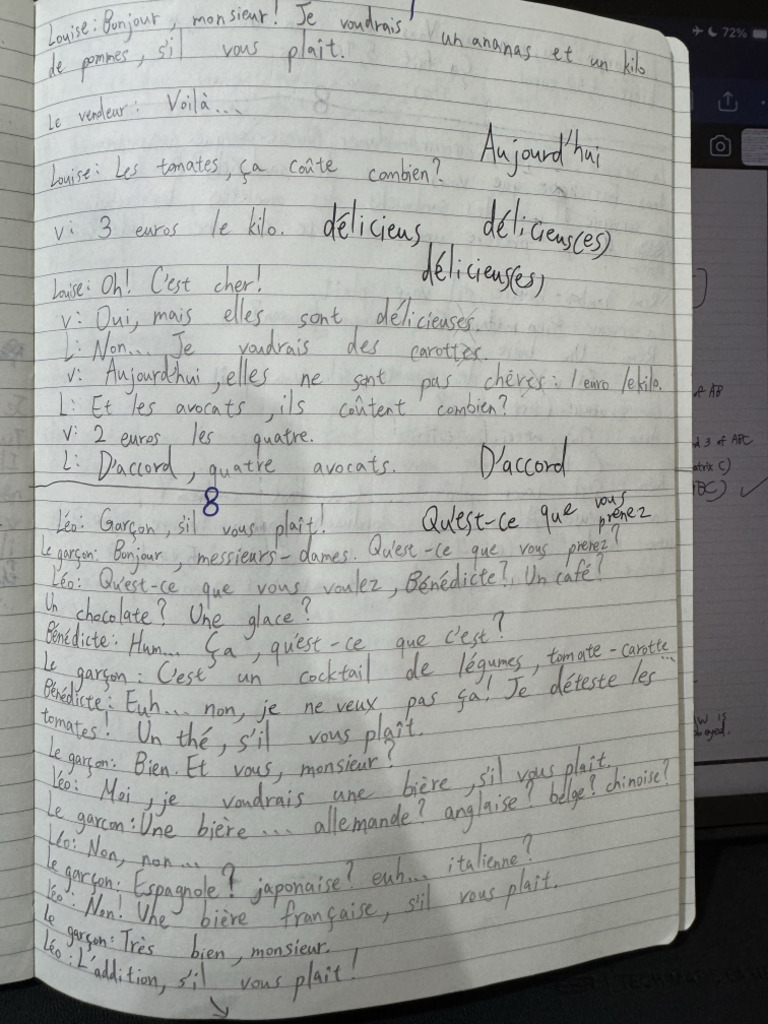 Louise: Bonjour, monsieur! Je voudrais un ananas et un kilo
de pommes, s'il vous plaît.
Le vendeur: Voilà...
Aujourd'hui
Louise: Les tomates, ça coûte combien?
v: 3 euros le kilo. déliciens déliciens(es)
déliciens(es)
Louise: Oh! C'est cher!
v: Oui, mais elles sont délicieuses.
L: Non... Je voudrais des carottes.
v: Aujourd'hui, elles ne sont pas chères: 1 euro le kilo.
L: Et les avocats, ils coûtent combien?
v: 2 euros les quatre.
L: D'accord, quatre avocats. D'accord
8
Léo: Garçon, s'il vous plaît! Qu'est-ce que vous prenez
Le garçon: Bonjour, messieurs-dames. Qu'est-ce que vous prenez?
Léo: Qu'est-ce que vous voulez, Bénédicte? Un café?
Un chocolate? Une glace?
Bénédicte: Hum... Ça, qu'est-ce que c'est?
Le garçon: C'est un cocktail de légumes, tomate-carotte...
Bénédicte: Euh... non, je ne veux pas ça! Je déteste les
tomates! Un thé, s'il vous plaît.
Le garçon: Bien. Et vous, monsieur?
Léo: Moi, je voudrais une bière, s'il vous plaît.
Le garcon: Une bière ... allemande? anglaise? belge? chinoise?
Léo: Non, non...
Le garçon: Espagnole? japonaise? euh... italienne?
Léo: Non! Une bière française, s'il vous plait.
Le garçon: Très bien, monsieur.
Léo: L'addition, s'il vous plait!
72%
of AB
3 of ABC
matrix C)
BC)